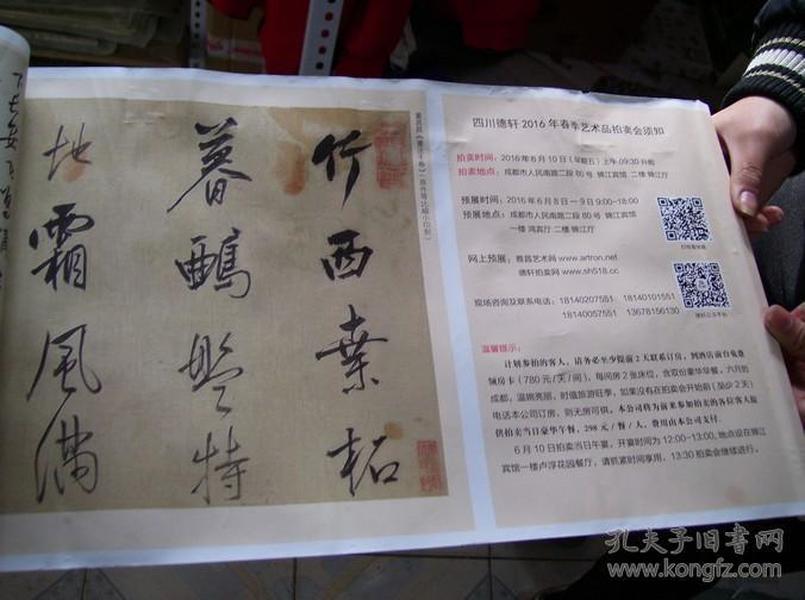 竹西桑柘
暮鸱盤特
地霜風满
四川德轩2016年春季艺术品拍卖会须知
拍卖时间：2016年6月10日（星期五）上午09:30开始
拍卖地点：成都市人民南路二段80号 锦江宾馆 二楼 锦江厅
预展时间：2016年6月8日—9日 9:00-18:00
预展地点：成都市人民南路二段80号 锦江宾馆
一楼 鸿宾厅 二楼 锦江厅
网上预展：雅昌艺术网 www.artron.net
德轩拍卖网 www.sh518.cc
现场咨询及联系电话：18140207551 18140101551
18140057551 13678156130
温馨提示：
计划参拍的客人，请务必至少提前2天联系订房，到酒店前台免费
领房卡（780元/天/间），每间房2张床位，含双份豪华早餐，六月的
成都，温婉亮丽，时值旅游旺季，如果没有在拍卖会开始前（至少2天）
电话本公司订房，则无房可供。本公司将为前来参加拍卖的各位客人提
供拍卖当日豪华午餐，298元/餐/人，费用由本公司支付。
6月10日拍卖当日午宴，开宴时间为12:00-13:00，地点设在锦江
宾馆一楼卢浮花园餐厅，请抓紧时间享用，13:30拍卖会继续进行。
孔夫子旧书网
www.kongfz.com